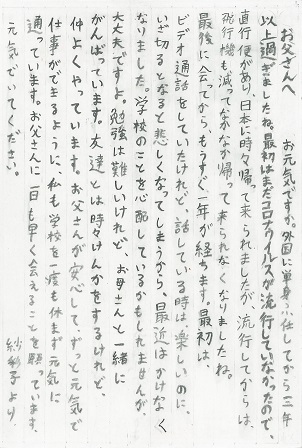 お父さんへ
お元気ですか。外国に単身赴任してから三年
以上過ぎましたね。最初はまだコロナウイルスが流行していなかったので、
直行便があり日本に時々帰って来られましたが、流行してからは、
飛行機も減ってなかなか帰って来られなくなりましたね。
最後に会ってからもうすぐ一年が経ちます。最初は
ビデオ通話をしていたけれど、話している時は楽しいのに、
いざ切るとなると悲しくなってしまうから、最近はかけなく
なりました。学校のことを心配しているかもしれませんが
大丈夫ですよ。勉強は難しいけれど、お母さんと一緒に
がんばっています。友達とは時々けんかをするけれど、
仲よくやっています。お父さんが安心して、ずっと元気で
仕事ができるように、私も学校を一度も休まず元気に
通っています。お父さんに一日も早く会えることを願っています。
元気でいてください。
紗彩子より